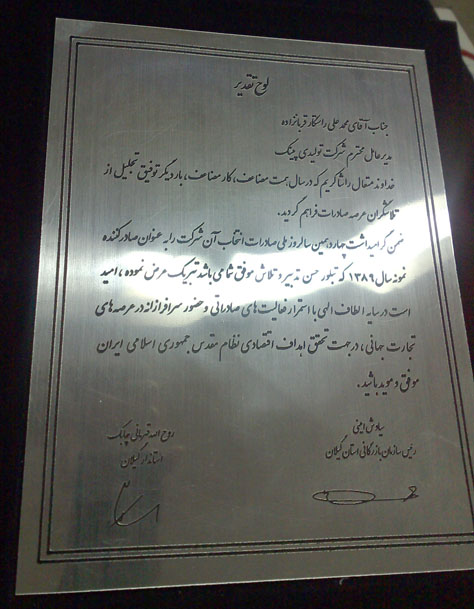 لوح تقدیر
جناب آقای محمد علی راستکار قربانزاده
مدیرعامل محترم شرکت تولیدی پیتک
خداوند متعال را شاکریم که در سال همت مضاعف، کار مضاعف، بار دیگر توفیق تجلیل از
تلاشگران عرصه صادرات فراهم گردید.
ضمن گرامیداشت چهاردهمین سالروز ملی صادرات انتخاب آن شرکت را به عنوان صادرکننده
نمونه سال ۱۳۸۹ که تبلور حسن تدبیر و تلاش موفق شما می باشد تبریک عرض نموده، امید
است در سایه الطاف الهی با استمرار فعالیت های صادراتی و حضور سرافرازانه در عرصه های
تجارت جهانی، در جهت تحقق اهداف اقتصادی نظام مقدس جمهوری اسلامی ایران
موفق و موید باشید.
سیاوش امینی
رئیس سازمان بازرگانی استان گیلان
روح الله قهرمانی چابک
استاندار گیلان